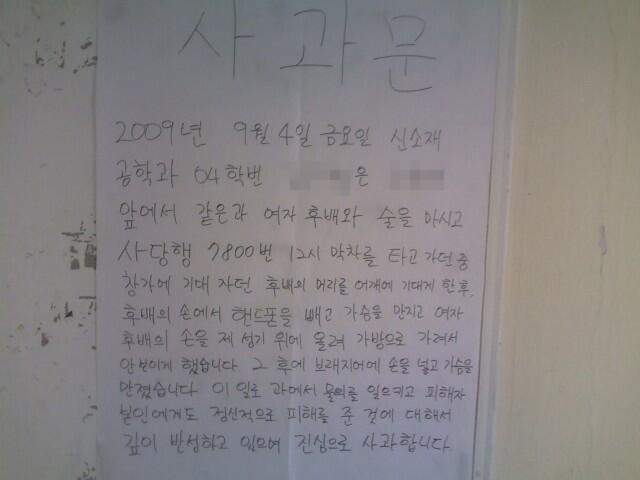 사 과 문
2009년 9월 4일 금요일 신소재
공학과 04학번 은
앞에서 같은과 여자 후배와 술을 마시고
사당행 7800번 12시 막차를 타고 가던 중
창가에 기대 자던 후배의 머리를 어깨에 기대게 한 후,
후배의 손에서 핸드폰을 빼고 가슴을 만지고 여자
후배의 손을 제 성기 위에 올려 가방으로 가려서
안보이게 했습니다 그 후에 브래지어에 손을 넣고 가슴을
만졌습니다 이 일로 과에서 물의를 일으키고 피해자
본인에게도 정신적으로 피해를 준 것에 대해서
깊이 반성하고 있으며 진심으로 사과합니다